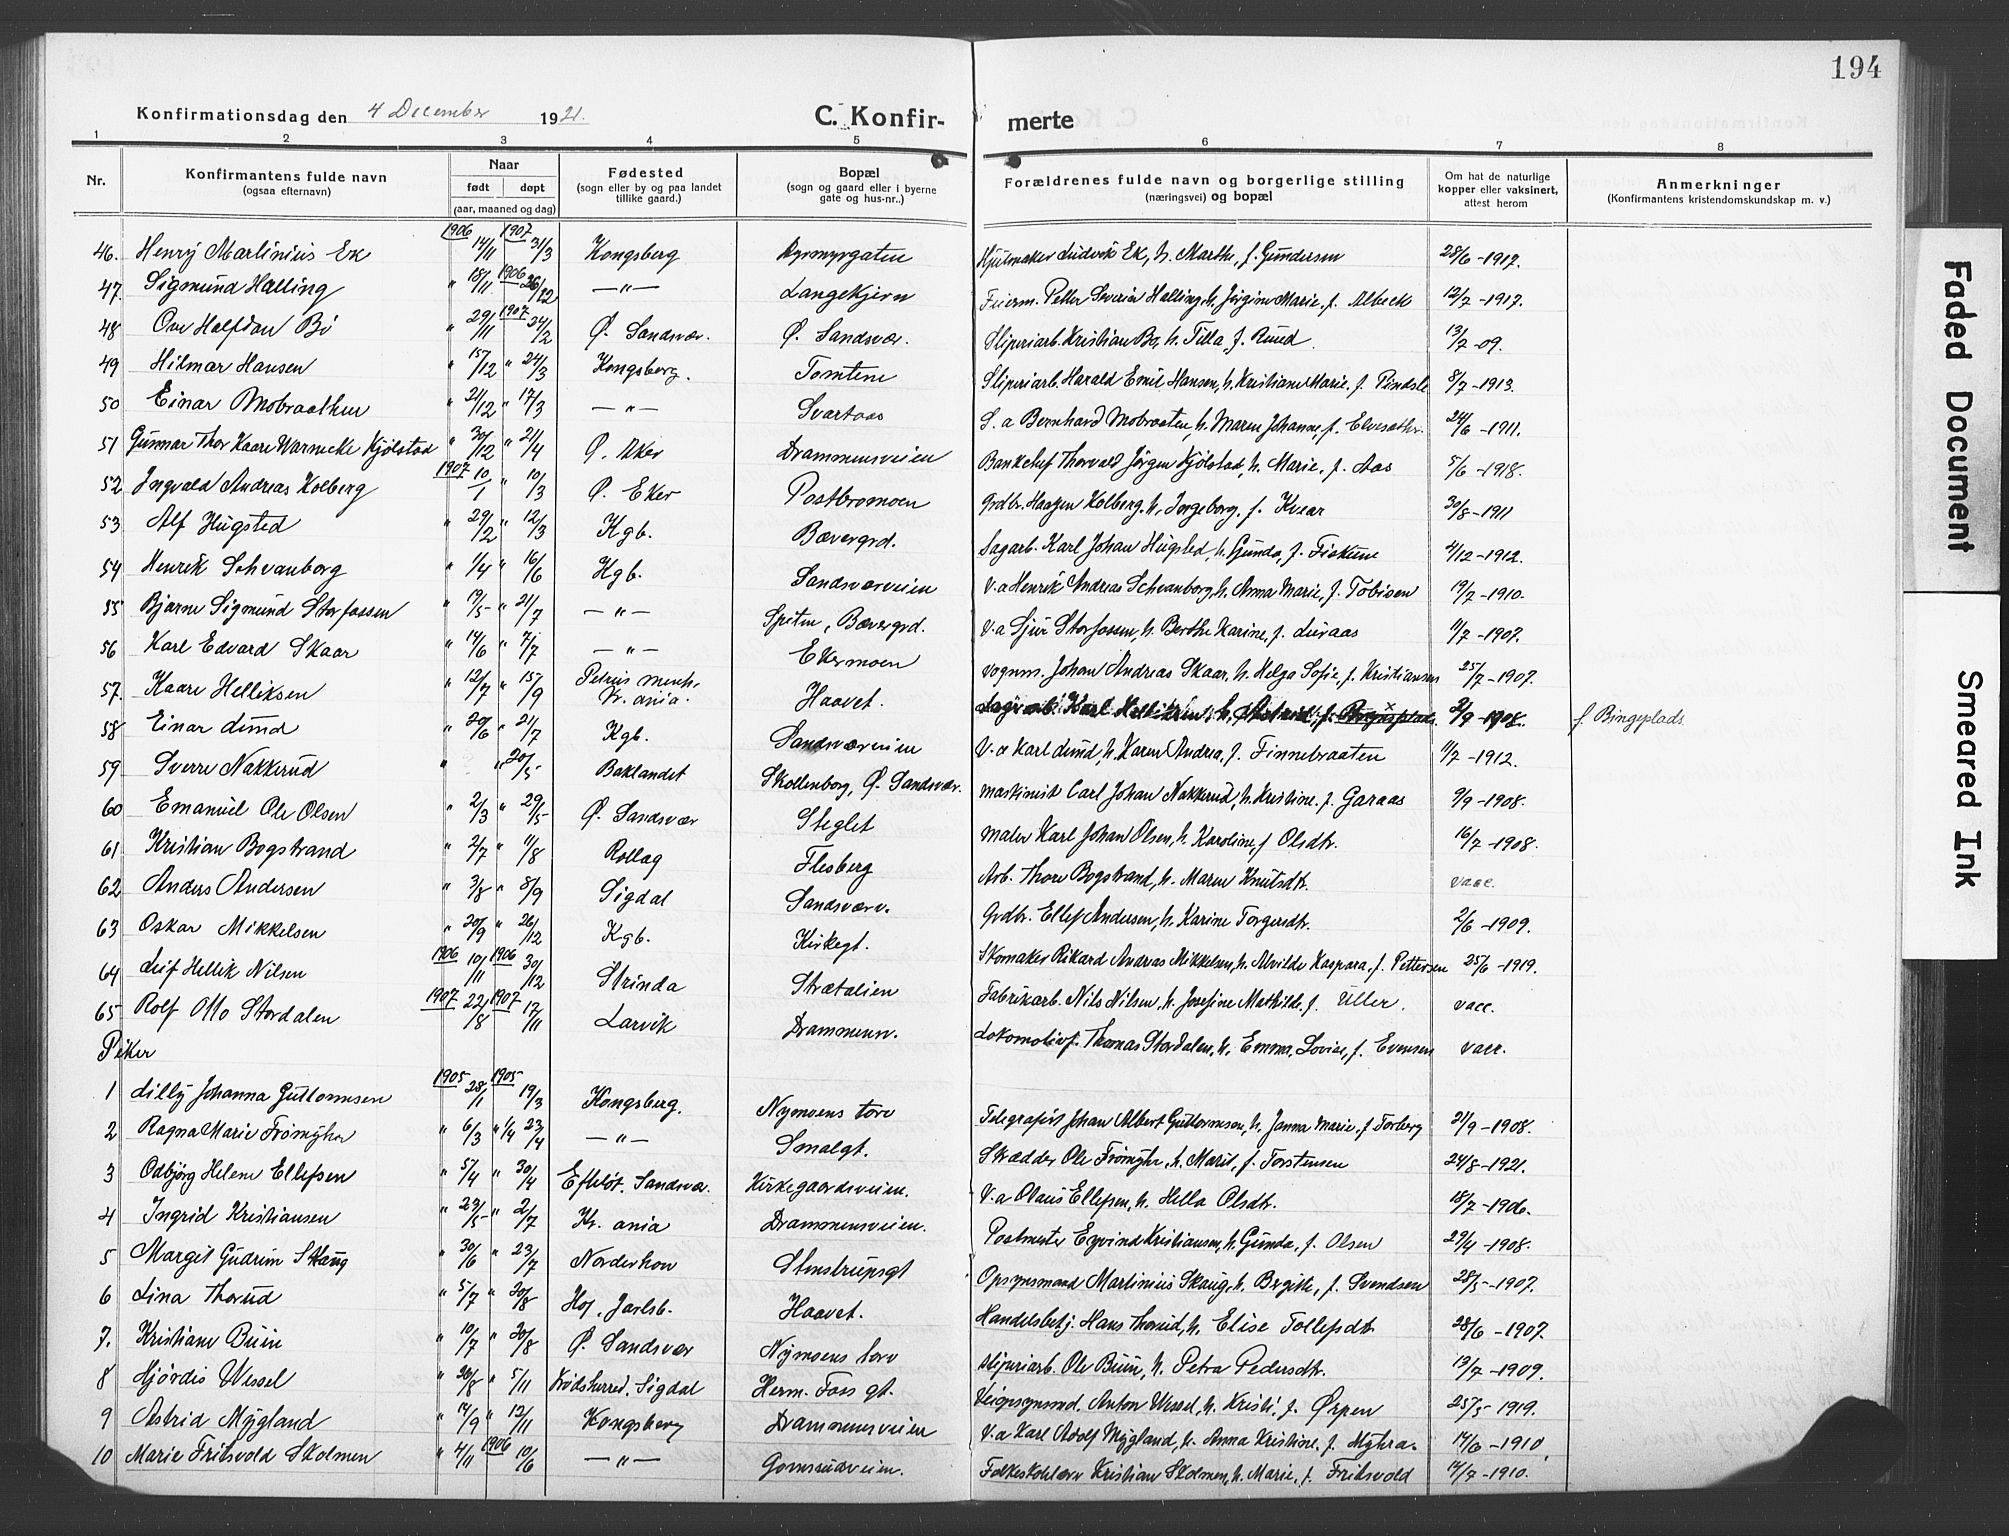 194
Konfirmationsdag den 4 December 1921.
C. Konfir-merte
1 2 3 4 5 6 7 8
Nr. Konfirmantens fulde navn (ogsaa efternavn) Naar født døpt (aar, maaned og dag) Fødested (sogn eller by og paa landet tillike gaard.) Bopæl (sogn og gaard eller i byerne gate og hus-nr..) Forældrenes fulde navn og borgerlige stilling (næringsvei) og bopæl Om hat de naturlige kopper eller vaksinert, attest herom Anmerkninger (Konfirmantens kristendomskundskap m. v.)
46. Henry Martinius Ek 1906 14/11 1907 31/3 Kongsberg Dyrmyrgaten Hjulmaker Ludvik Ek, h. Marthe, f. Gundersen 28/6 -1917.
47. Sigmund Hælling " 18/11 1906 26/12 —"— Langekjern Feierm. Petter Severin Hælling, h. Jørgine Marie, f. Albeck 12/7 -1917.
48 Ove Halfdan Bö " 29/11 1907 24/2 Ø. Sandsvær. Ø. Sandsvær. Sliperiarb. Kristian Bø, h. Tilla f. Ruud. 13/7 -09.
49 Hilmar Hansen " 15/12 " 24/3 Kongsberg. Tomtene Sliperiarb. Harald Emil Hansen, h. Kristiane Marie, f. Pindsle 8/7 -1913.
50 Einar Mobraathen " 21/12 " 17/3 —"— Svartaas S. a Bernhard Mobraaten, h. Maren Johanne, f. Elvesæthr. 24/6 -1911.
51 Gunnar Thor Kaare Warnecke Kjølstad " 30/12 " 21/4 Ø. Aker Drammensveien Bankchef Thorvald Jørgen Kjølstad, h. Marie, f. Aas 5/6 -1918.
52 Ingvald Andreas Kolberg 1907 10/1 " 10/3 Ø. Eker Postbromoen Grdbr. Haagen Kolberg, h. Ingeborg, f. Kvear 30/8 -1911
53 Alf Hugsted " 29/2 " 12/3 Kgb. Bævergrd. Sagarb. Karl Johan Hugsted, h. Gunda, f. Fiskum 4/12 -1912.
54 Henrik Schvanborg " 1/4 " 16/6 Kgb. Sandsværveien V. a Henrik Andreas Schvanborg, h. Anna Marie, f. Tobisen 19/7 -1910.
55 Bjarne Sigmund Storfossen " 19/5 " 21/7 —"— Speten, Bævergrd. V. a Sjur Storfossen, h. Berthe Karine, f. Luraas 11/7 -1907.
56 Karl Edvard Skaar " 14/6 " 7/7 —"— Ekermoen Vognm. Johan Andreas Skaar, h. Helga Sofie, f. Kristiansen 25/7 -1907.
57. Kaare Helliksen " 12/7 " 15/9 Petrus menh. Kr. ania. Haavet. Sagarb. Karl Helliksen, h. f. × 2/9 -1908. f. Bingeplads
58 Einar Lund " 20/6 " 21/7 Kgb. Sandsværveien V. a Karl Lund, h. Karen Andrea, f. Finnebraaten 11/7 -1912.
59 Sverre Nakkerud " " 20/5 Baklandet Skollenborg, Ø. Sandsvær. Maskinist Carl Johan Nakkerud, h. Kristine, f. Garaas 9/9 -1908.
60 Emanuel Ole Olsen " 2/3 " 29/5 Ø. Sandsvær Steglet Maler Karl Johan Olsen, h. Karoline, f Olsdtr. 16/7 -1908.
61 Kristian Bogstrand " 2/7 " 11/8 Rollag Flesberg Arb. Thore Bogstrand, h. Maren Knutsdtr. vacc.
62 Anders Andersen " 3/8 " 8/9 Sigdal Sandsværv. Grdbr. Ellef Andersen, h. Karine Torgersdtr. 2/6 -1909.
63 Oskar Mikkelsen " 20/9 " 26/12 Kgb. Kirkegt. Skomaker Rikard Andreas Mikkelsen, h. Alvilde Kaspara, f. Pettersen 25/6 -1919.
64 Leif Hellik Nilsen 1906 10/11 1906 30/12 Strinda Strætalien Fabrikarb. Nils Nilsen, h. Josefine Mathilde, f. Uller. vacc.
65 Rolf Otto Stordalen 1907 22/8 1907 17/11 Larvik Drammensv. Lokomotivf. Thomas Stordalen, h. Emma Lovise, f. Evensen vacc.
Piker
1 Lilly Johanna Guttormsen 1905 28/1 1905 19/3 Kongsberg. Nymoens torv Telegrafist Johan Albert Guttormsen, h. Janna Marie, f Torberg 21/9 -1908.
2 Ragna Marie Frømyhr " 6/3 " 1/4 23/4 —"— Smalgt. Skrædder Ole Frømyhr, h. Marit, f. Torstensen 24/8 -1921.
3 Odbjørg Helene Ellefsen " 5/4 " 30/4 Efteløt. Sandsvær. Kirkegaardsveien. V. a Olaus Ellefsen, h. Hella Olsdtr. 18/7 -1906.
4 Ingrid Kristiansen " 23/5 " 2/7 Kr. ania Drammensveien. Postmester Eyvind Kristiansen, h. Gunda, f. Olsen 29/4 -1908.
5 Margit Gudrun Skaug " 30/6 " 23/7 Norderhov Stenstrupsgt Opsynsmand Martinius Skaug, h. Birgitte, f. Svendsen 28/5 -1907.
6 Lina Thorud " 5/7 " 20/8 Hof, Jarlsb. Haavet. Handelsbetj. Hans Thorud, h. Elise Tollefsdtr 28/6 -1907.
7. Kristiane Buin " 10/7 " 20/8 Ø. Sandsvær Nymoens torv Sliperiarb. Ole Buin, h. Petra Pedersdtr. 13/7 -1909.
8 Hjørdis Wessel " 26/8 " 5/11 Krødsherred, Sigdal Herm. Foss gt. Veiopsynsmd. Anton Wessel, h. Kristi, f. Ørpen 25/5 -1919.
9 Astrid Mygland " 14/9 " 12/11 Kongsberg Drammensveien V. a Karl Adolf Mygland, h. Anna Kristine, f. Myhra. 14/6 -1910
10 Marie Fritsvold Skolmen " 4/11 1906 10/6 —"— Gomsrudveien. Folkeskolelærer Kristian Skolmen, h. Marie, f. Fritsvold 14/7 -1910.
Faded Document
Smeared Ink